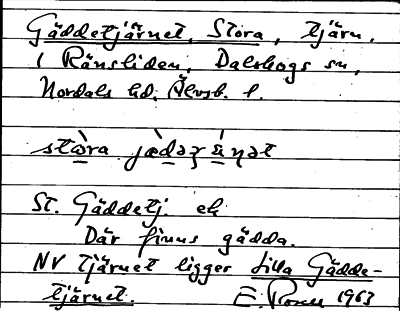 Gäddetjärnet, Stora, tjärn,
i Ränsliden, Dalskogs sn,
Nordals hd. Älvsb. l.
St. Gäddetj. ek
Där finns gädda.
NV tjärnet ligger Lilla Gädde-
tjärnet. E. 1963